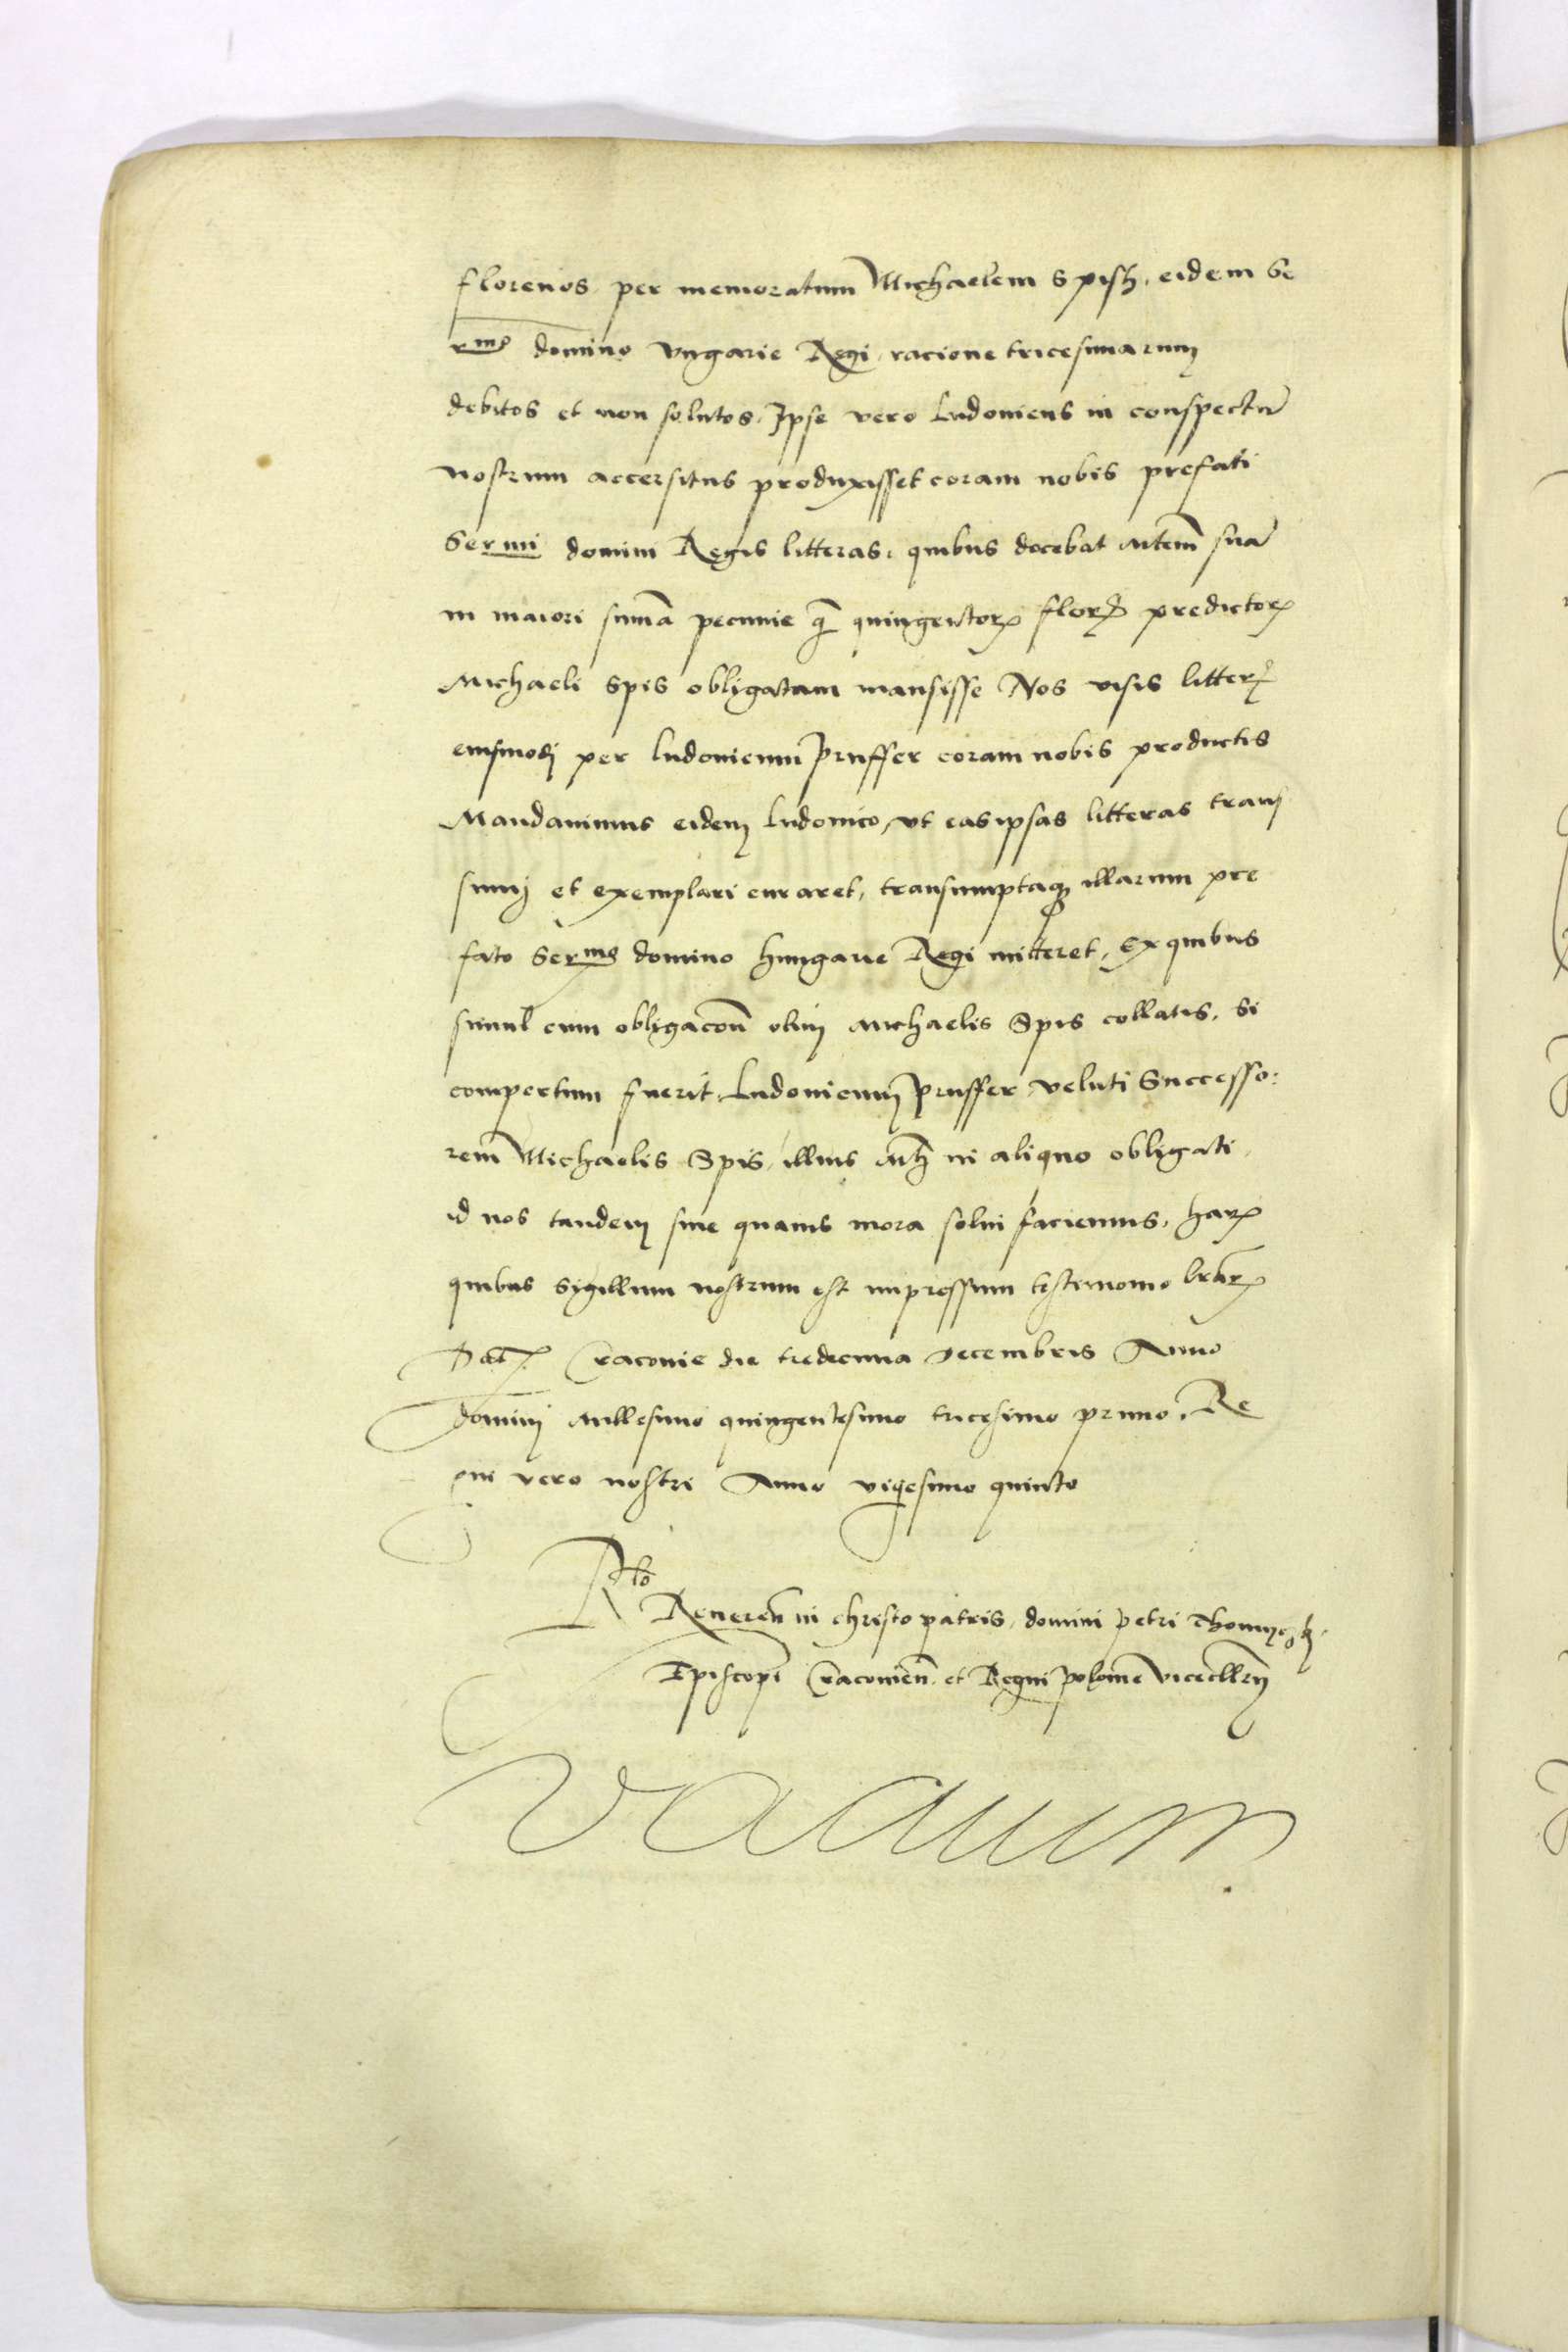 florenos per memoratum Michaelem Spisz, eidem Se
rmo domino Vngarie Regi, racione tricesimarum
debitos et non solutos, Ipse vero Ludouicus in conspectū
nostrum accersitus produxisset coram nobis prefati
Sermi domini Regis litteras, quibus docebat Mtem suā
in maiori sumā pecunie q̄ quingentorꝝ florꝝ predictorꝝ
Michaeli Spis obligatam mansisse Nos visis litterꝭ
eiusmodi per Ludouicum Pruffer coram nobis productis
Mandauimus eidem Ludouico, vt eas ipsas litteras tran
sumi et exemplari curaret, transumptaqꝫ illarum pre
fato Sermo domino Hungarie Regi mitteret, Ex quibus
simul cum obligacōn olim Michaelis Spis collatis, si
compertum fuerit, Ludouicum Pruffer veluti Successo:
rem Michaelis Spis, illius Mti in aliquo obligati
id nos tandem sine quauis mora solui faciemus, harꝝ
quibus Sigillum nostrum est impressum testimonio lrārꝝ
Datꝝ Cracouie die tredecima Decembris Anno
domini Millesimo quingentesimo tricesimo primo, Re
gni vero nostri Anno vigesimo quinto
Rlo
Reueren̄ in christo patris, domini Petri Thomiczkj
Episcopi Cracouien̄. et Regni Polonie Vicecllrij
Vacuum